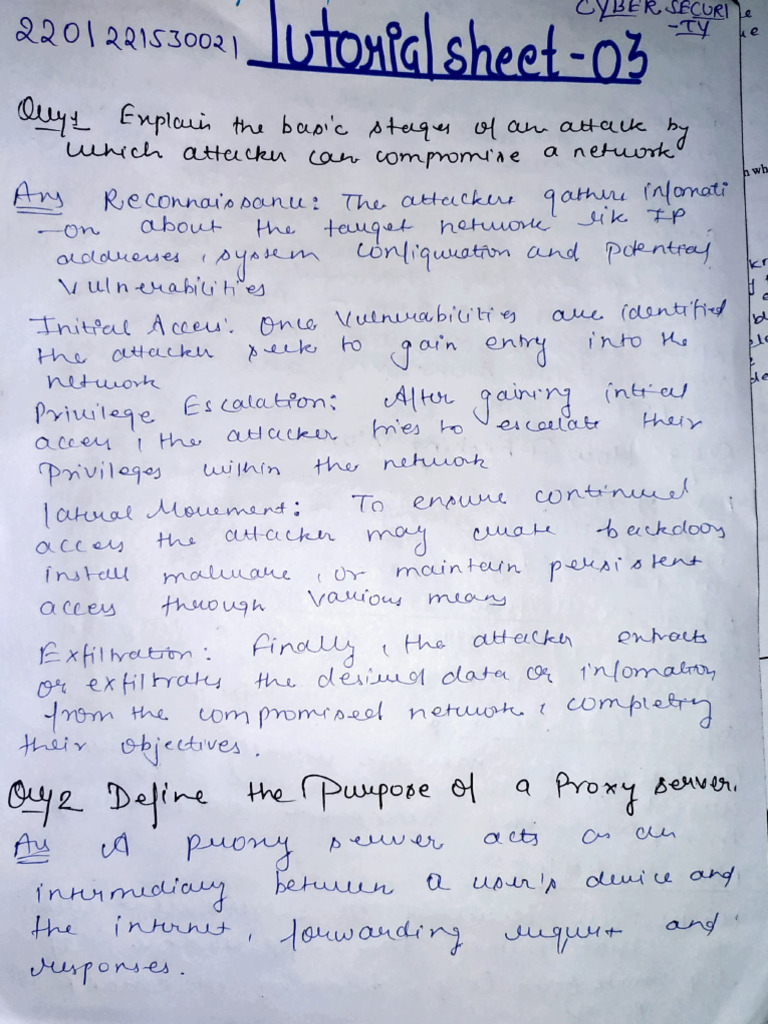 CYBER SECURI
-TY
2201221530021 Tutorial sheet-03
Ques1 Explain the basic stages of an attack by
which attacker can compromise a network
Ans Reconnaissance: The attackers gathers infomati
-on about the target network lik IP
addresses, system configuration and potential
vulnerabilities
Initial Access: Once vulnerabilities are identified
the attacker seek to gain entry into the
network
Privilege Escalation: After gaining intial
access, the attacker tries to escalate their
Privileges within the network
lateral Movement: To ensure continued
access the attacker may create backdoors
install malware, or maintain persistent
access through various means
Exfiltration: finally, the attacker extracts
or exfiltrates the desired data or infomation
from the compromised network, completing
their objectives.
Ques2 Define the Purpose of a Proxy server.
Ans A proxy server acts as an
intermediary between a user's device and
the internet, forwarding request and
responses.